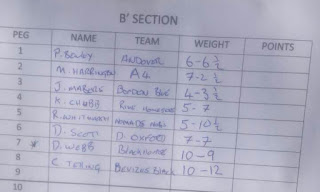 B' SECTION
PEG NAME TEAM WEIGHT POINTS
1 P. BEWLEY ANDOVER 6-6 ½
2 M. HARRINGTON A4 7-2 ½
3 J. BORDON BLUE 4-3 ½
4 K. CHUBB 5-7
5 R. WHITMARSH 5-10 ½
6 D. SCOTT D. OXFORD 7-7
7 D. WEBB BLACKHORSE 10-9
8 C. DEVIZES BLACK 10-12
9
10